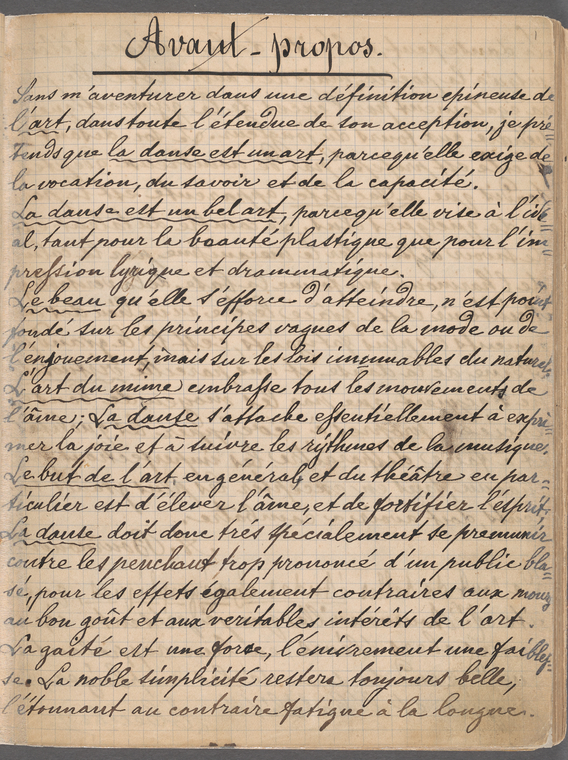 Avant-propos.
Sans m'aventurer dans une définition epineuse de
l'art, dans toute l'étendue de son acception, je pré=
tends que la danse est un art, parcequ'elle exige de
la vocation, du savoir et de la capacité.
La danse est un bel art, parcequ'elle vise à l'idé
al, tant pour la beauté plastique que pour l'im=
pression lyrique et drammatique.
Le beau qu'elle s'éfforce d'atteindre, n'est point
fondé sur les principes vagues de la mode ou de
l'enjouement, mais sur les lois immuables du naturel.
L'art du mime embrasse tous les mouvements de
l'âme; La danse s'attache essentiellement à expri=
mer la joie et à suivre les rÿthmes de la musique.
Le but de l'art en général, et du théâtre en par=
ticulier est d'élever l'âme, et de fortifier l'ésprit.
La danse doit donc trés spécialement se premunir
contre les penchant trop prononcé d'un public bla=
sé, pour les effets également contraires aux
au bon goût et aux veritables intérêts de l'art.
La gaîté est une force, l'énivrement une faibles=
se. La noble simplicité restera toujours belle,
l'étonnant au contraire fatigue à la longue.